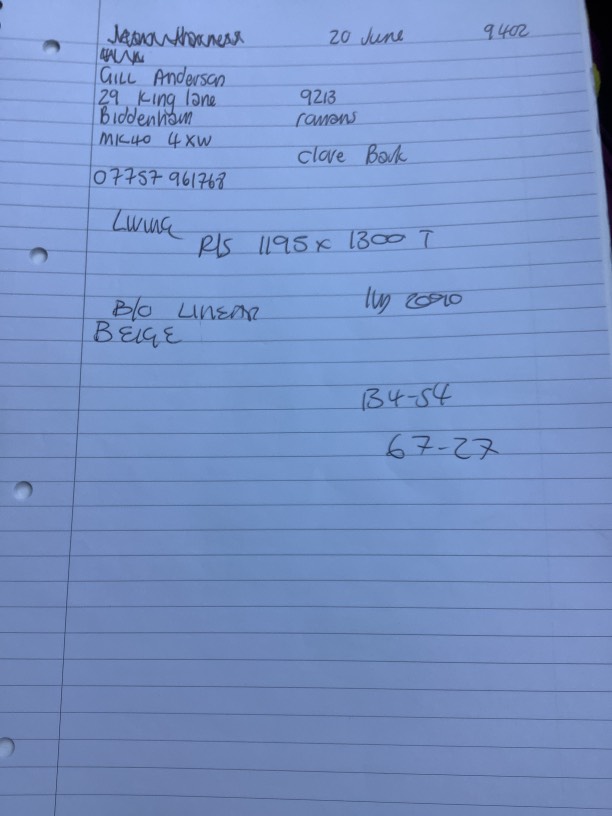 20 June 9402
Gill Anderson
29 King lane 9213
Biddenham romans
MK40 4XW
Clove Back
07757 961768
Living
R/S 1195 x 1300 T
B/O Linear
BEIGE
134-54
67-27